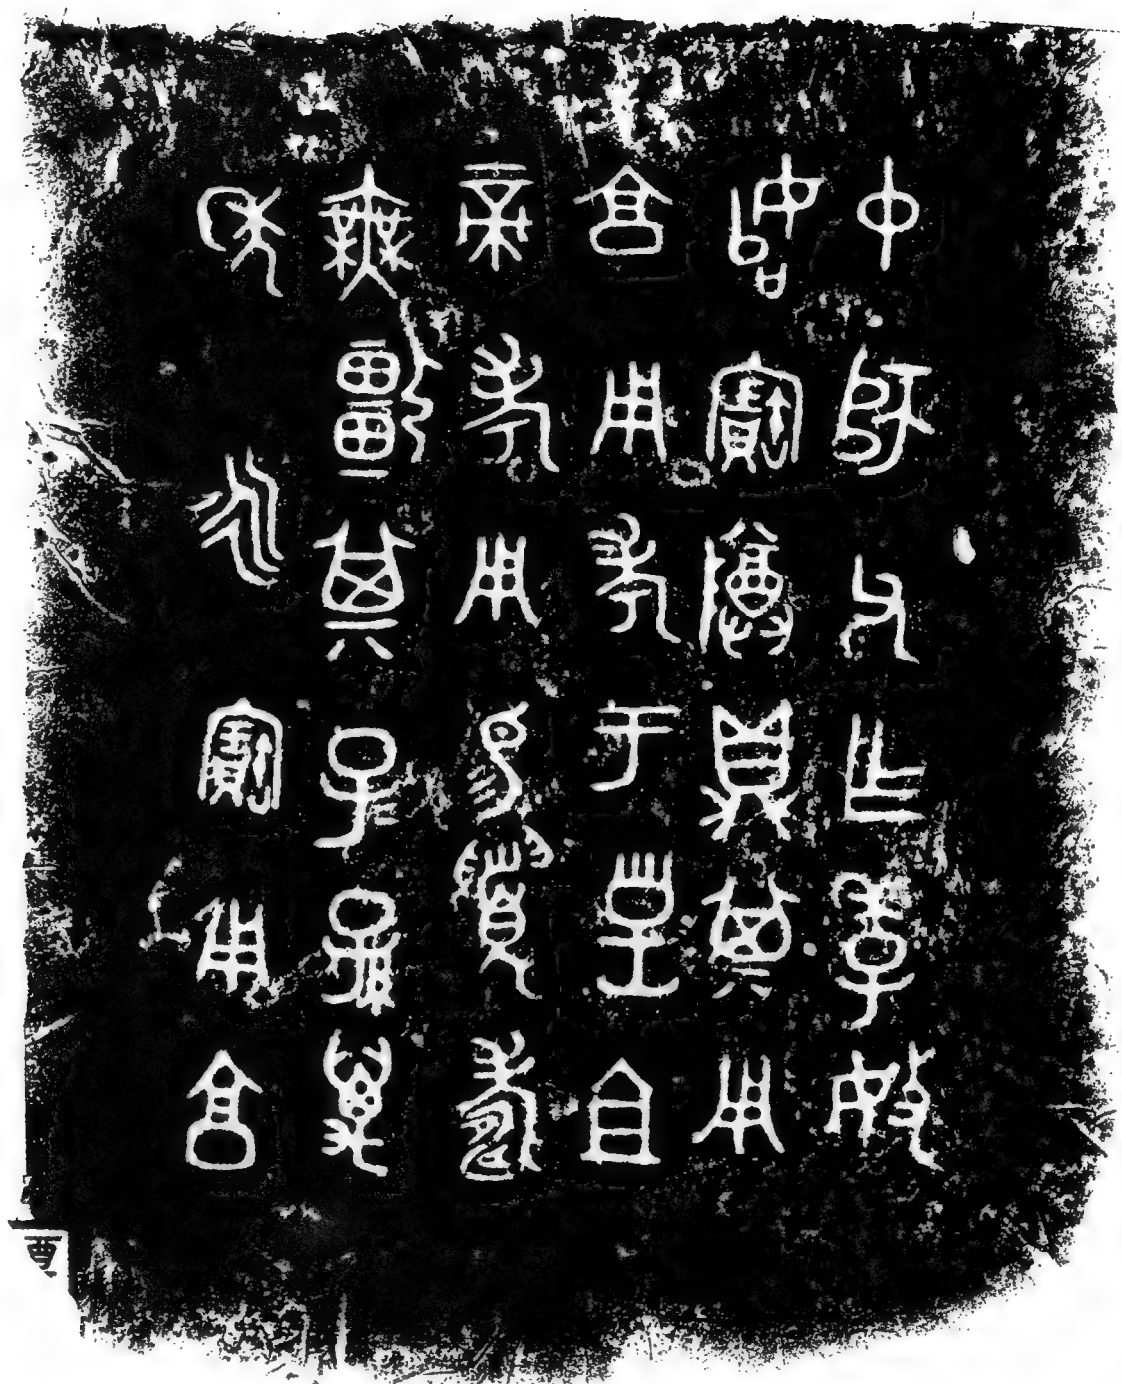 中師父乍季妓
始寶尊鼎其用
享用考于皇且
帝考用易眉壽
無疆其子孫萬
年永寶用享